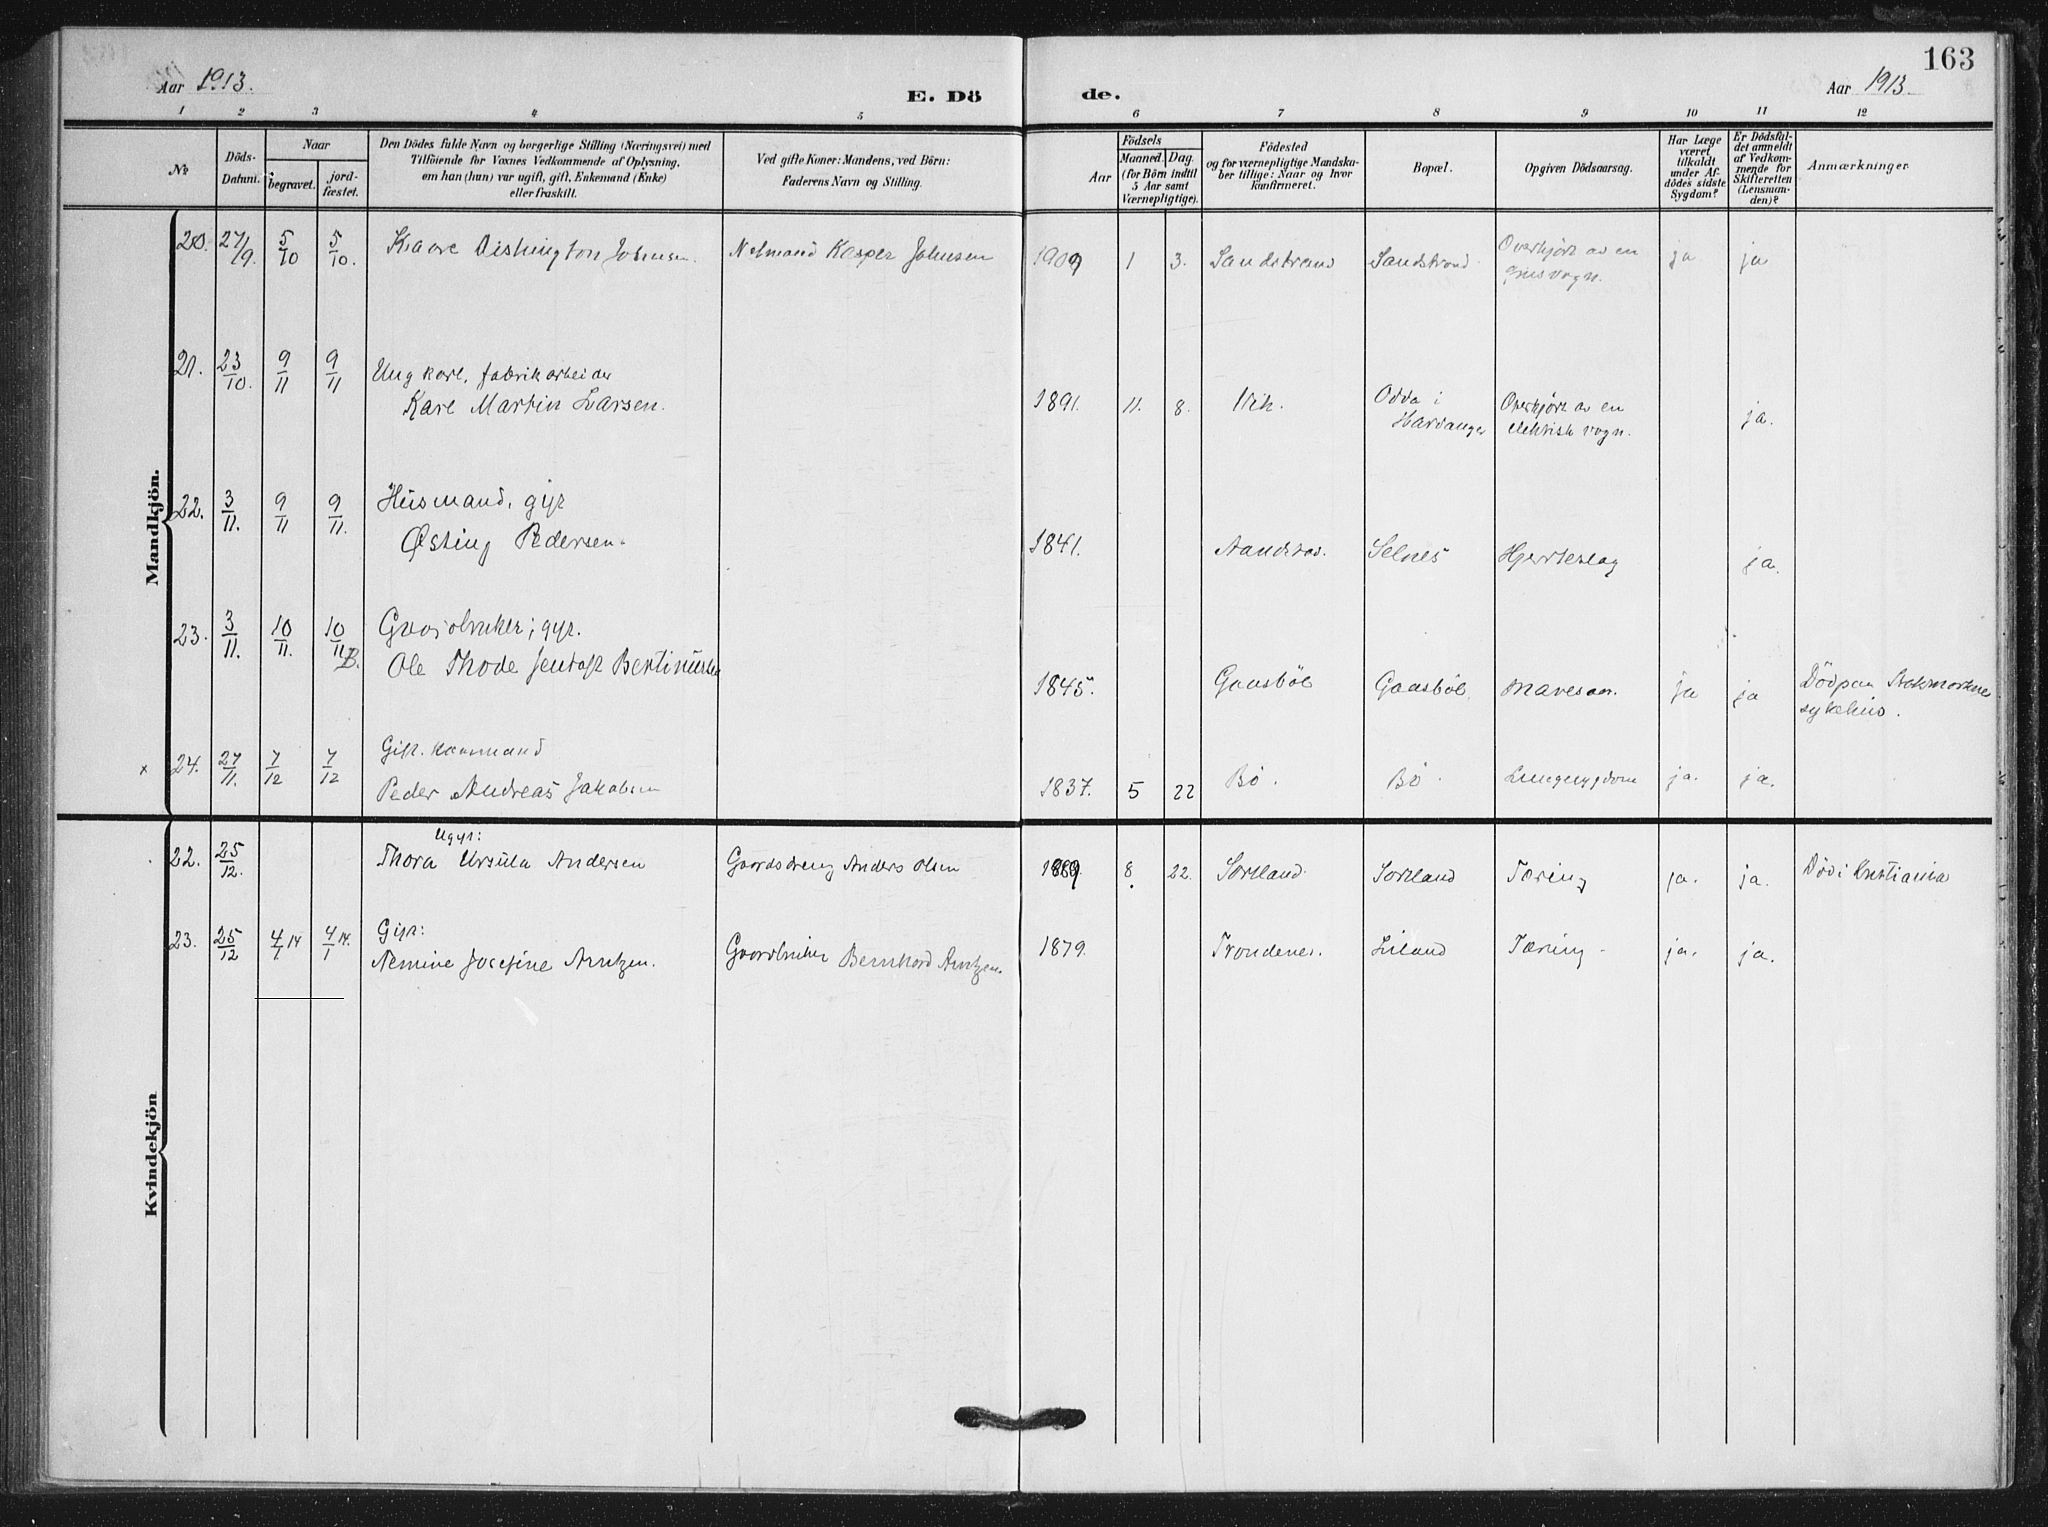 163
Aar 1913.
E. Dö
de.
Aar 1913.
1 2 3 4 5 6 7 8 9 10 11 12
No.
Döds-
Datum.
Naar
begravet.
jord-
fæstet.
Den Dödes fulde Navn og borgerlige Stilling (Næringsvei) med
Tilföiende for Voxnes Vedkommende af Oplysning,
om han (hun) var ugift, gift, Enkemand (Enke)
eller fraskilt.
Ved gifte Koner: Mandens, ved Börn:
Faderens Navn og Stilling.
Födsels
Aar
Maaned. Dag.
(for Börn indtil
5 Aar samt
Værnepligtige).
Födested
og for værnepligtige Mandska-
ber tillige: Naar og hvor
konfirmeret.
Bopæl.
Opgiven Dödsaarsag.
Har Læge
været
tilkaldt
under Af-
dödes sidste
Sygdom?
Er Dödsfal-
det anmeldt
af Vedkom-
mende for
Skifteretten
(Lensman-
den)?
Anmærkninger
Mandkjön.
20. 27/9. 5/10 5/10. Kaare Dishington Johnsen. Kasper Johnsen 1909 1 3. Sandstrand Sandstrand Overkjört av en
grusvogn. ja ja
21. 23/10. 9/11 9/11 Ungkarl, fabrikarbeider
Karl Martin Larsen. 1891. 11. 8. Vik. Odda i
Hardanger Overkjört av en
elektrisk vogn. ja.
22. 3/11. 9/11 9/11. Husmand, gift
Østing Pedersen. 1841. Selnes Hjerteslag ja.
23. 3/11. 10/11. 10/11 B. Gaardbruker, gift.
Ole Thode Bertinussen 1845. Gausböl Gausböl. ja ja Död paa Stokmarknes
sykehus.
x 24. 27/11. 7/12 7/12 Gift. kaarmand
Peder Andreas Jakobsen 1837. 5 22 Bö. Bö. Lungesygdom ja. ja.
Kvindekjön
22. 25/12. Ugift:
Thora Ursula Andersen Gaardsdreng Anders Olsen 1889. 8. 22. Sortland. Sortland Tæring ja. ja. Död i Kristiania
23. 25/12 4/1 14 4/1 14. Gift:
Nemine Josefine Arntzen. Gaardbruker Bernhard Arntzen. 1879. Trondenes. Liland Tæring. ja. ja.